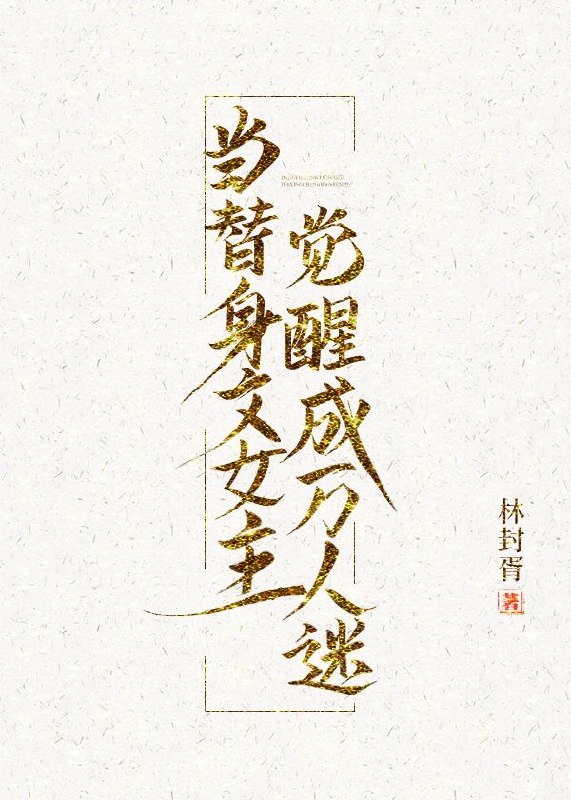 当替身文女主
觉醒成万人迷
林封胥
著